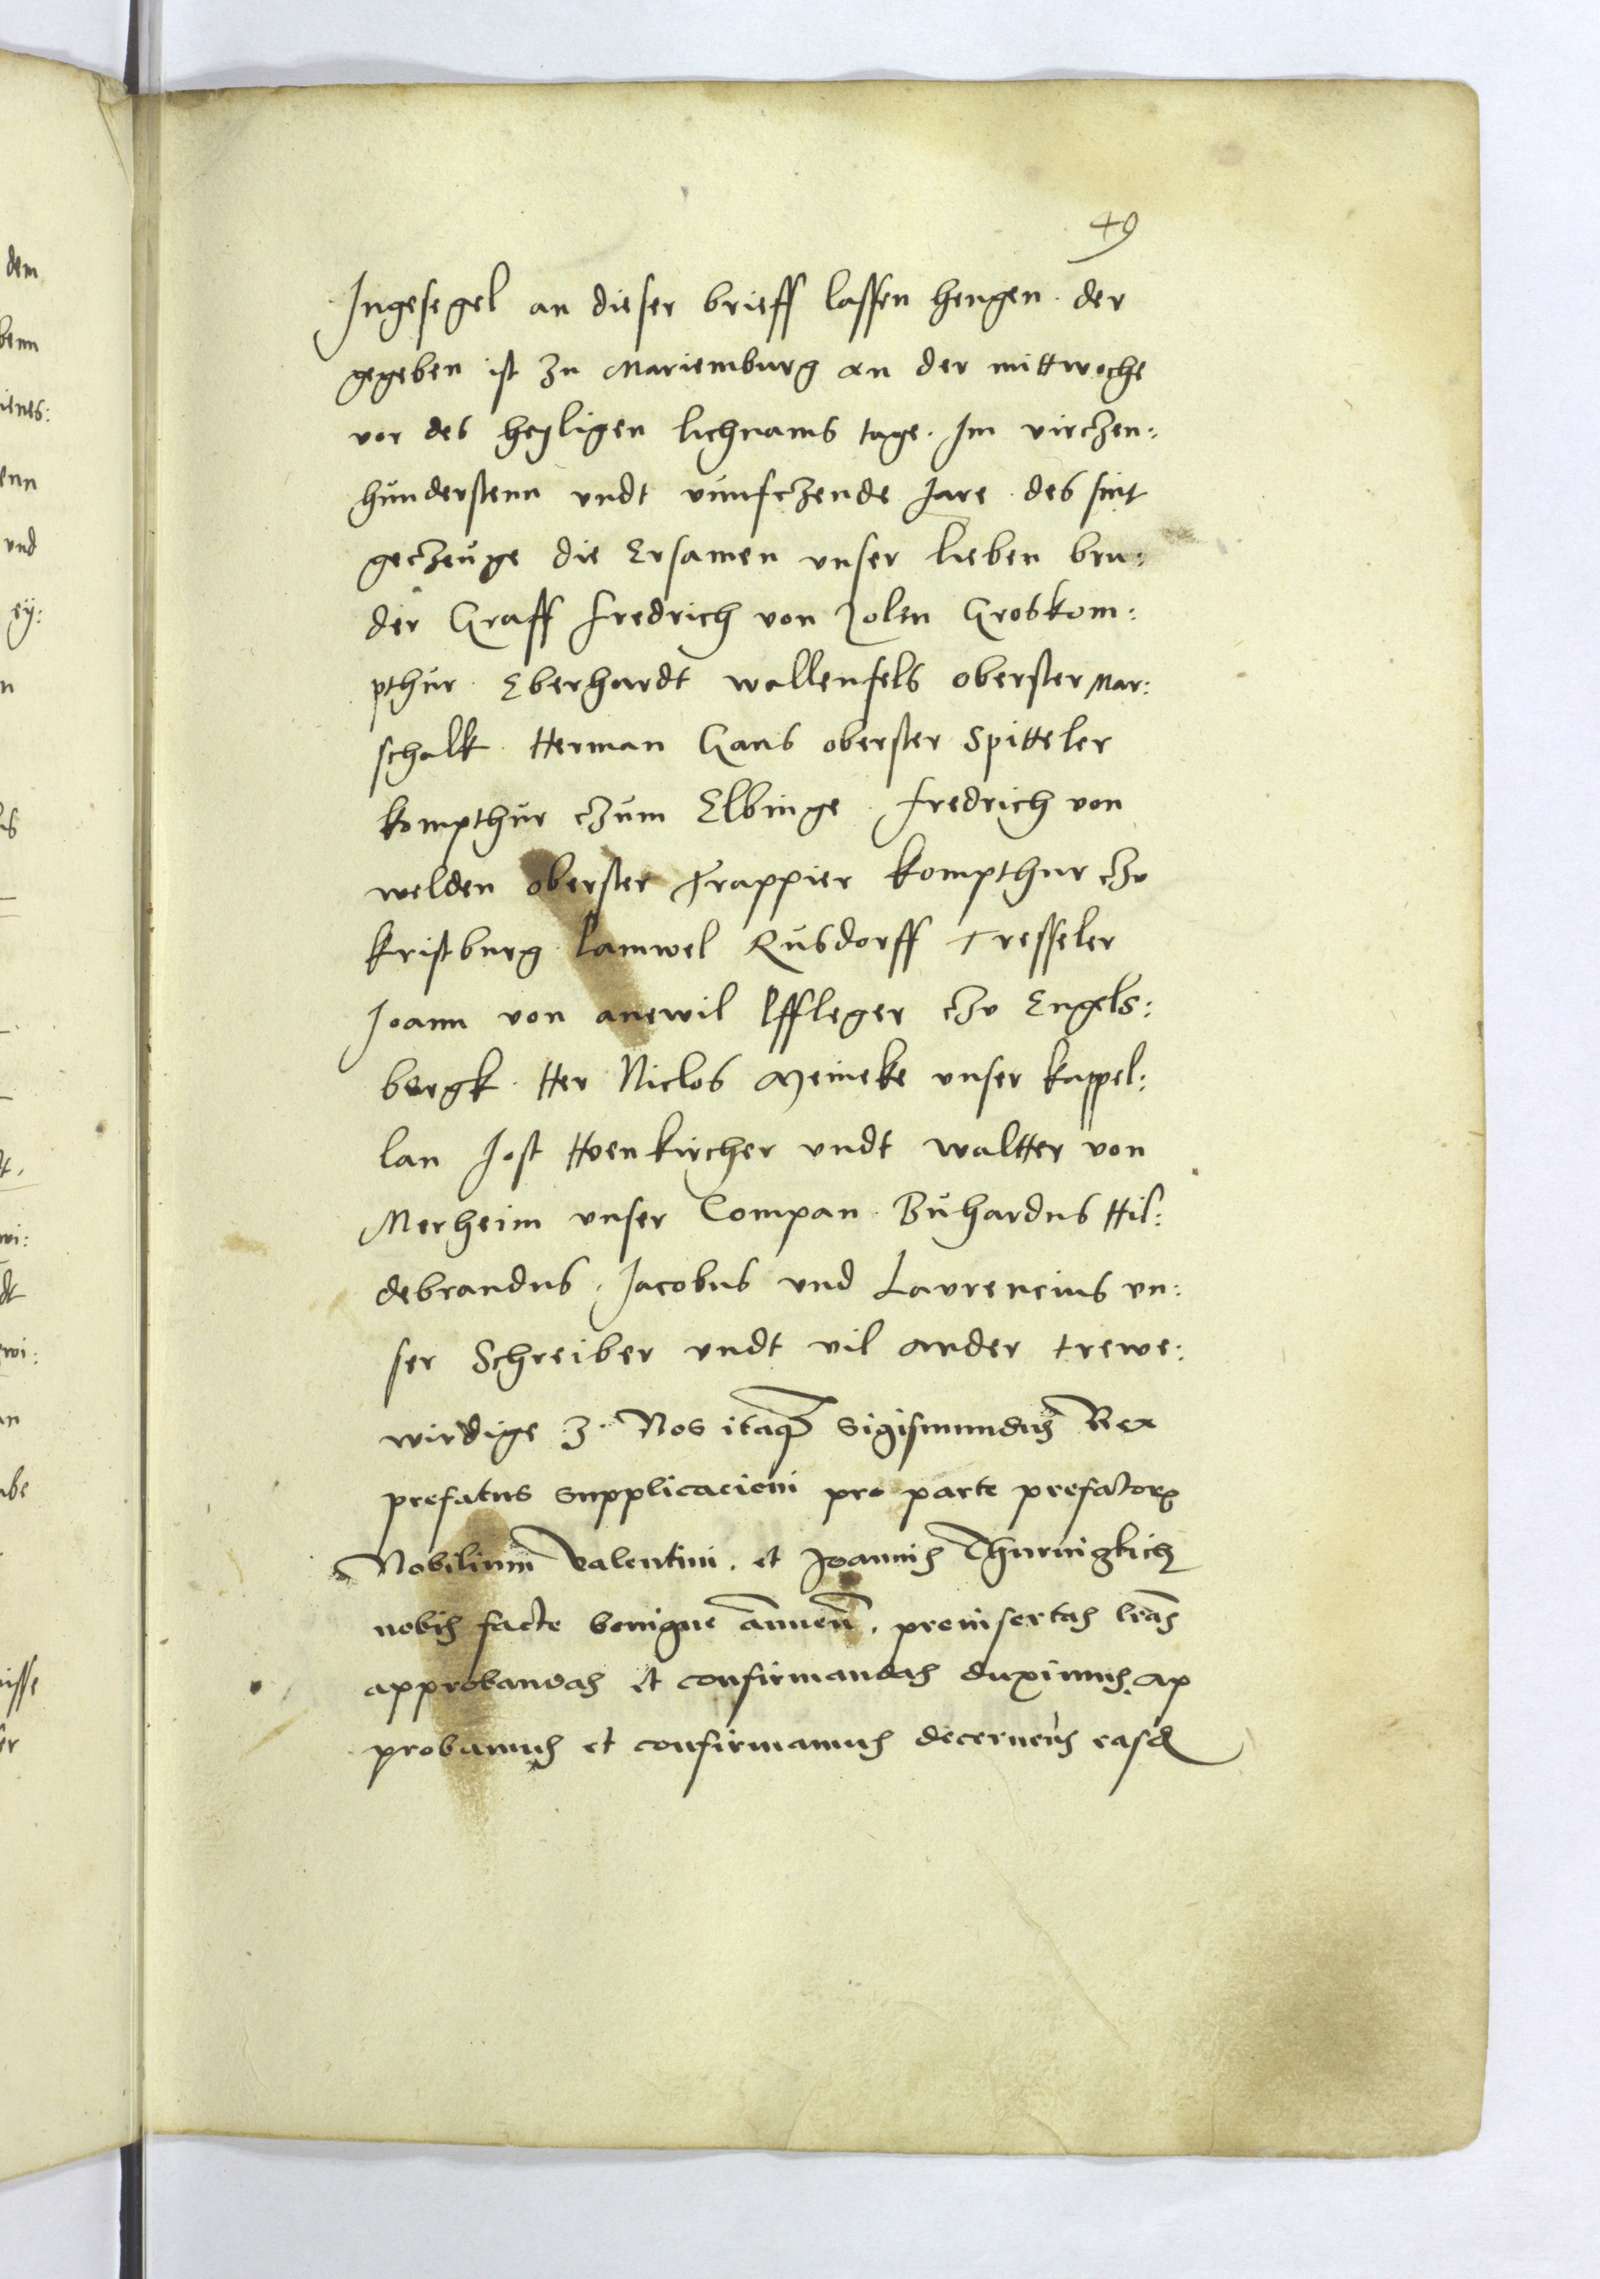 49
Ingesegel an dieser brieff lassen hengen. der
gegeben ist zu Mariemburg an der mittwoche
vor des heyligen lichnams tage. Im virczen:
hunderstenn undt vumfczende Jare. des sint
geczeuge die Ersamen unser lieben bru:
der Graff Fredrich von Zolen Groskom:
pthur. Eberhardt wallenfels oberster Mar:
schalk. Herman Gans oberster Spitteler
kompthur czum Elbinge. Fredrich von
welden oberster Trappier kompthur czu
kristburg. Lamwel Rusdorff Tresseler
Joann von anewil Pffleger czu Engels:
bergk. Her Niclos Meineke unser kappel:
lan Jost Hoenkircher undt waltter von
Merheim unser Compan. Buhardus Hil:
debrandus. Jacobus und Laurencius un:
ser Schreiber undt vil ander trewe:
wirdige. Nos itaq Sigismundus Rex
prefatus supplicacioni pro parte prefator
Nobilium Valentini. et Joannis
nobis facte benigne annuen. preinsertas lras
approbandas et confirmandas duximus. ap
probamus et confirmamus decernens easd
dem
benn
ienes:
enn
und
ey:
n